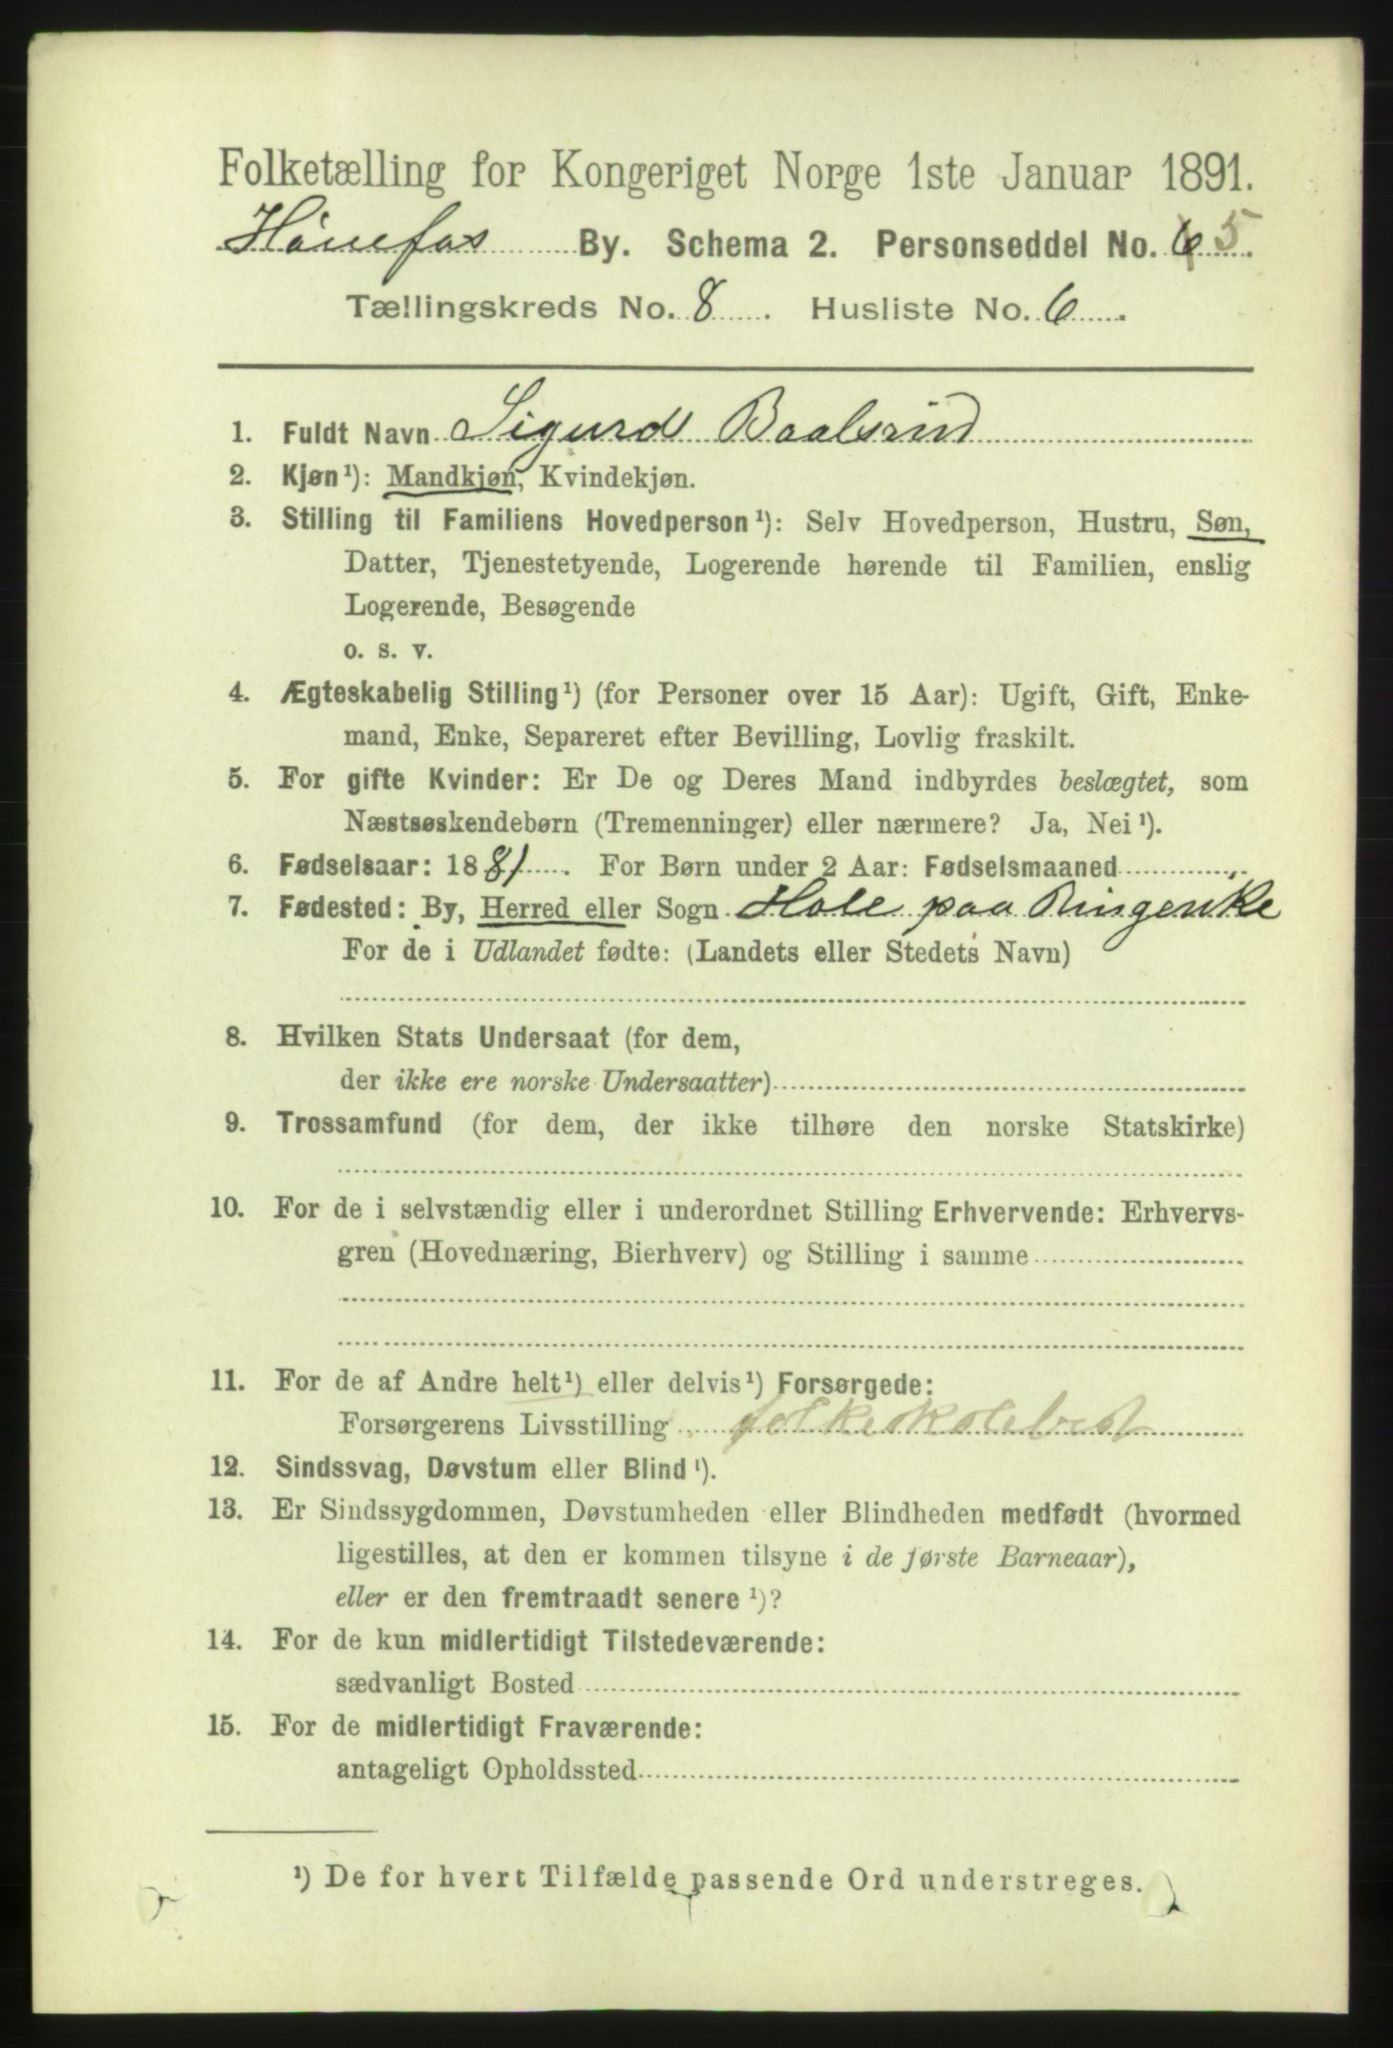 Folketælling for Kongeriget Norge 1ste Januar 1891.
Hønefos By. Schema 2. Personseddel No. 6 5
Tællingskreds No. 8. Husliste No. 6.
1. Fuldt Navn Sigurd Baalsrud
2. Kjøn¹): Mandkjøn, Kvindekjøn.
3. Stilling til Familiens Hovedperson¹): Selv Hovedperson, Hustru, Søn,
Datter, Tjenestetyende, Logerende hørende til Familien, enslig
Logerende, Besøgende
o. s. v.
4. Ægteskabelig Stilling¹) (for Personer over 15 Aar): Ugift, Gift, Enke-
mand, Enke, Separeret efter Bevilling, Lovlig fraskilt.
5. For gifte Kvinder: Er De og Deres Mand indbyrdes beslægtet, som
Næstsøskendebørn (Tremenninger) eller nærmere? Ja, Nei¹).
6. Fødselsaar: 1881. For Børn under 2 Aar: Fødselsmaaned
7. Fødested: By, Herred eller Sogn Hole paa Ringerike
For de i Udlandet fødte: (Landets eller Stedets Navn)
8. Hvilken Stats Undersaat (for dem,
der ikke ere norske Undersaatter)
9. Trossamfund (for dem, der ikke tilhøre den norske Statskirke)
10. For de i selvstændig eller i underordnet Stilling Erhvervende: Erhvervs-
gren (Hovednæring, Bierhverv) og Stilling i samme
11. For de af Andre helt¹) eller delvis¹) Forsørgede:
Forsørgerens Livsstilling folkeskolebest
12. Sindssvag, Døvstum eller Blind¹).
13. Er Sindssygdommen, Døvstumheden eller Blindheden medfødt (hvormed
ligestilles, at den er kommen tilsyne i de første Barneaar),
eller er den fremtraadt senere¹)?
14. For de kun midlertidigt Tilstedeværende:
sædvanligt Bosted
15. For de midlertidigt Fraværende:
antageligt Opholdssted
¹) De for hvert Tilfælde passende Ord understreges.